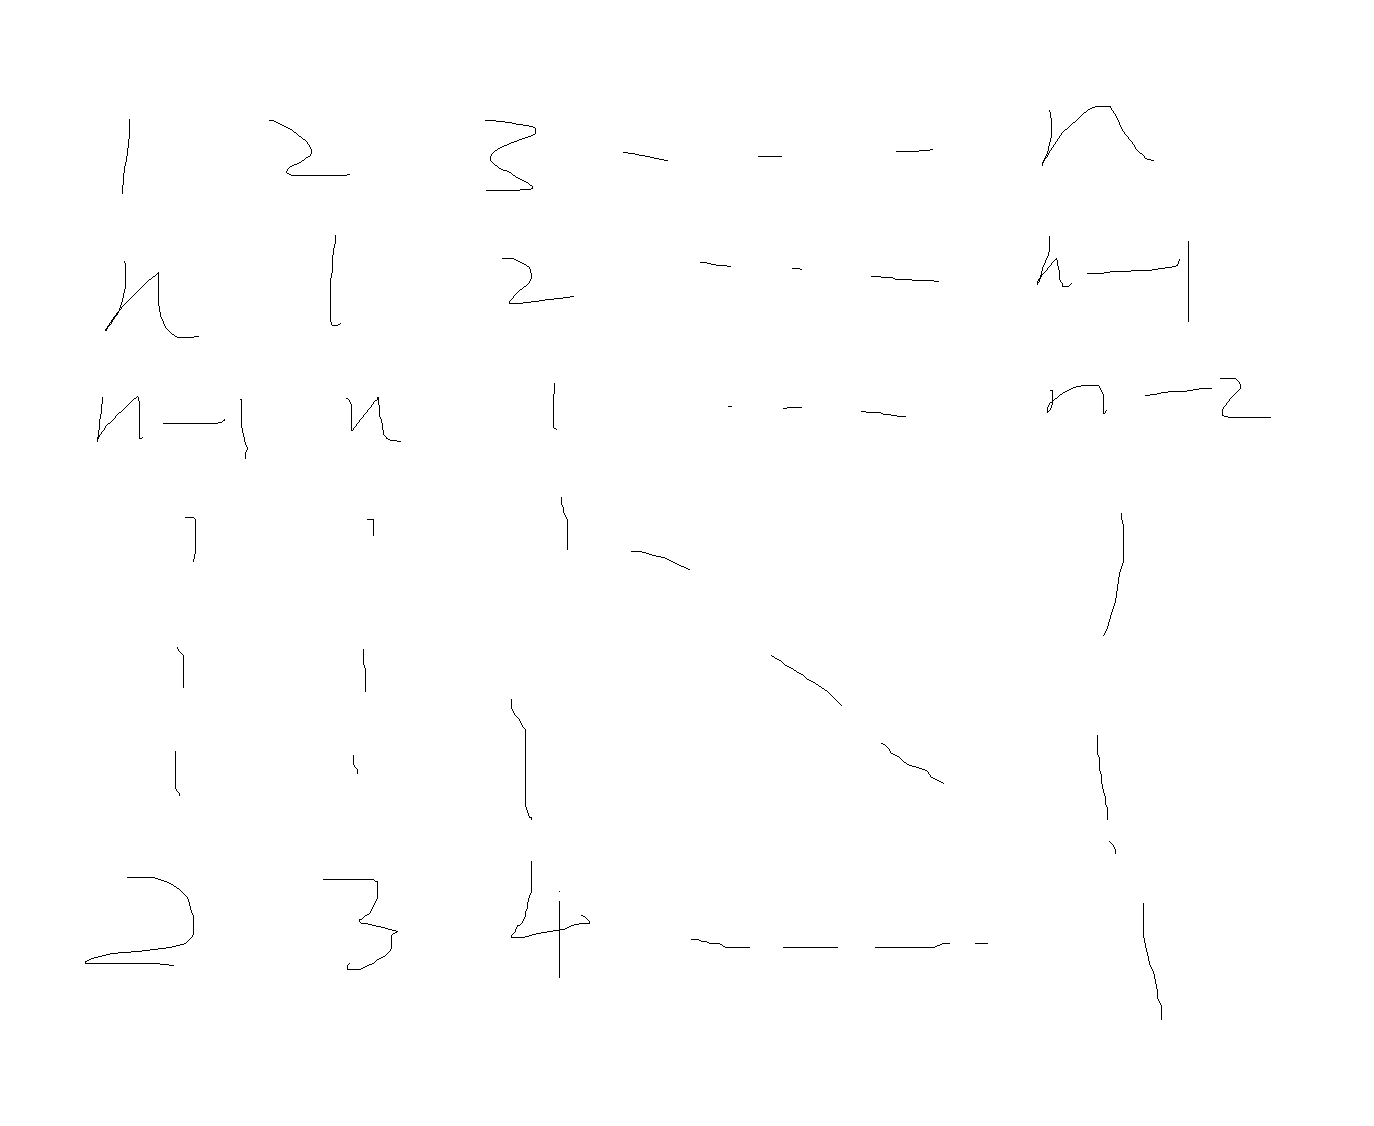 1 2 3 - - - n
n 1 2 - - - n-1
n-1 n 1 - - - n-2
2 3 4 - - - - 1